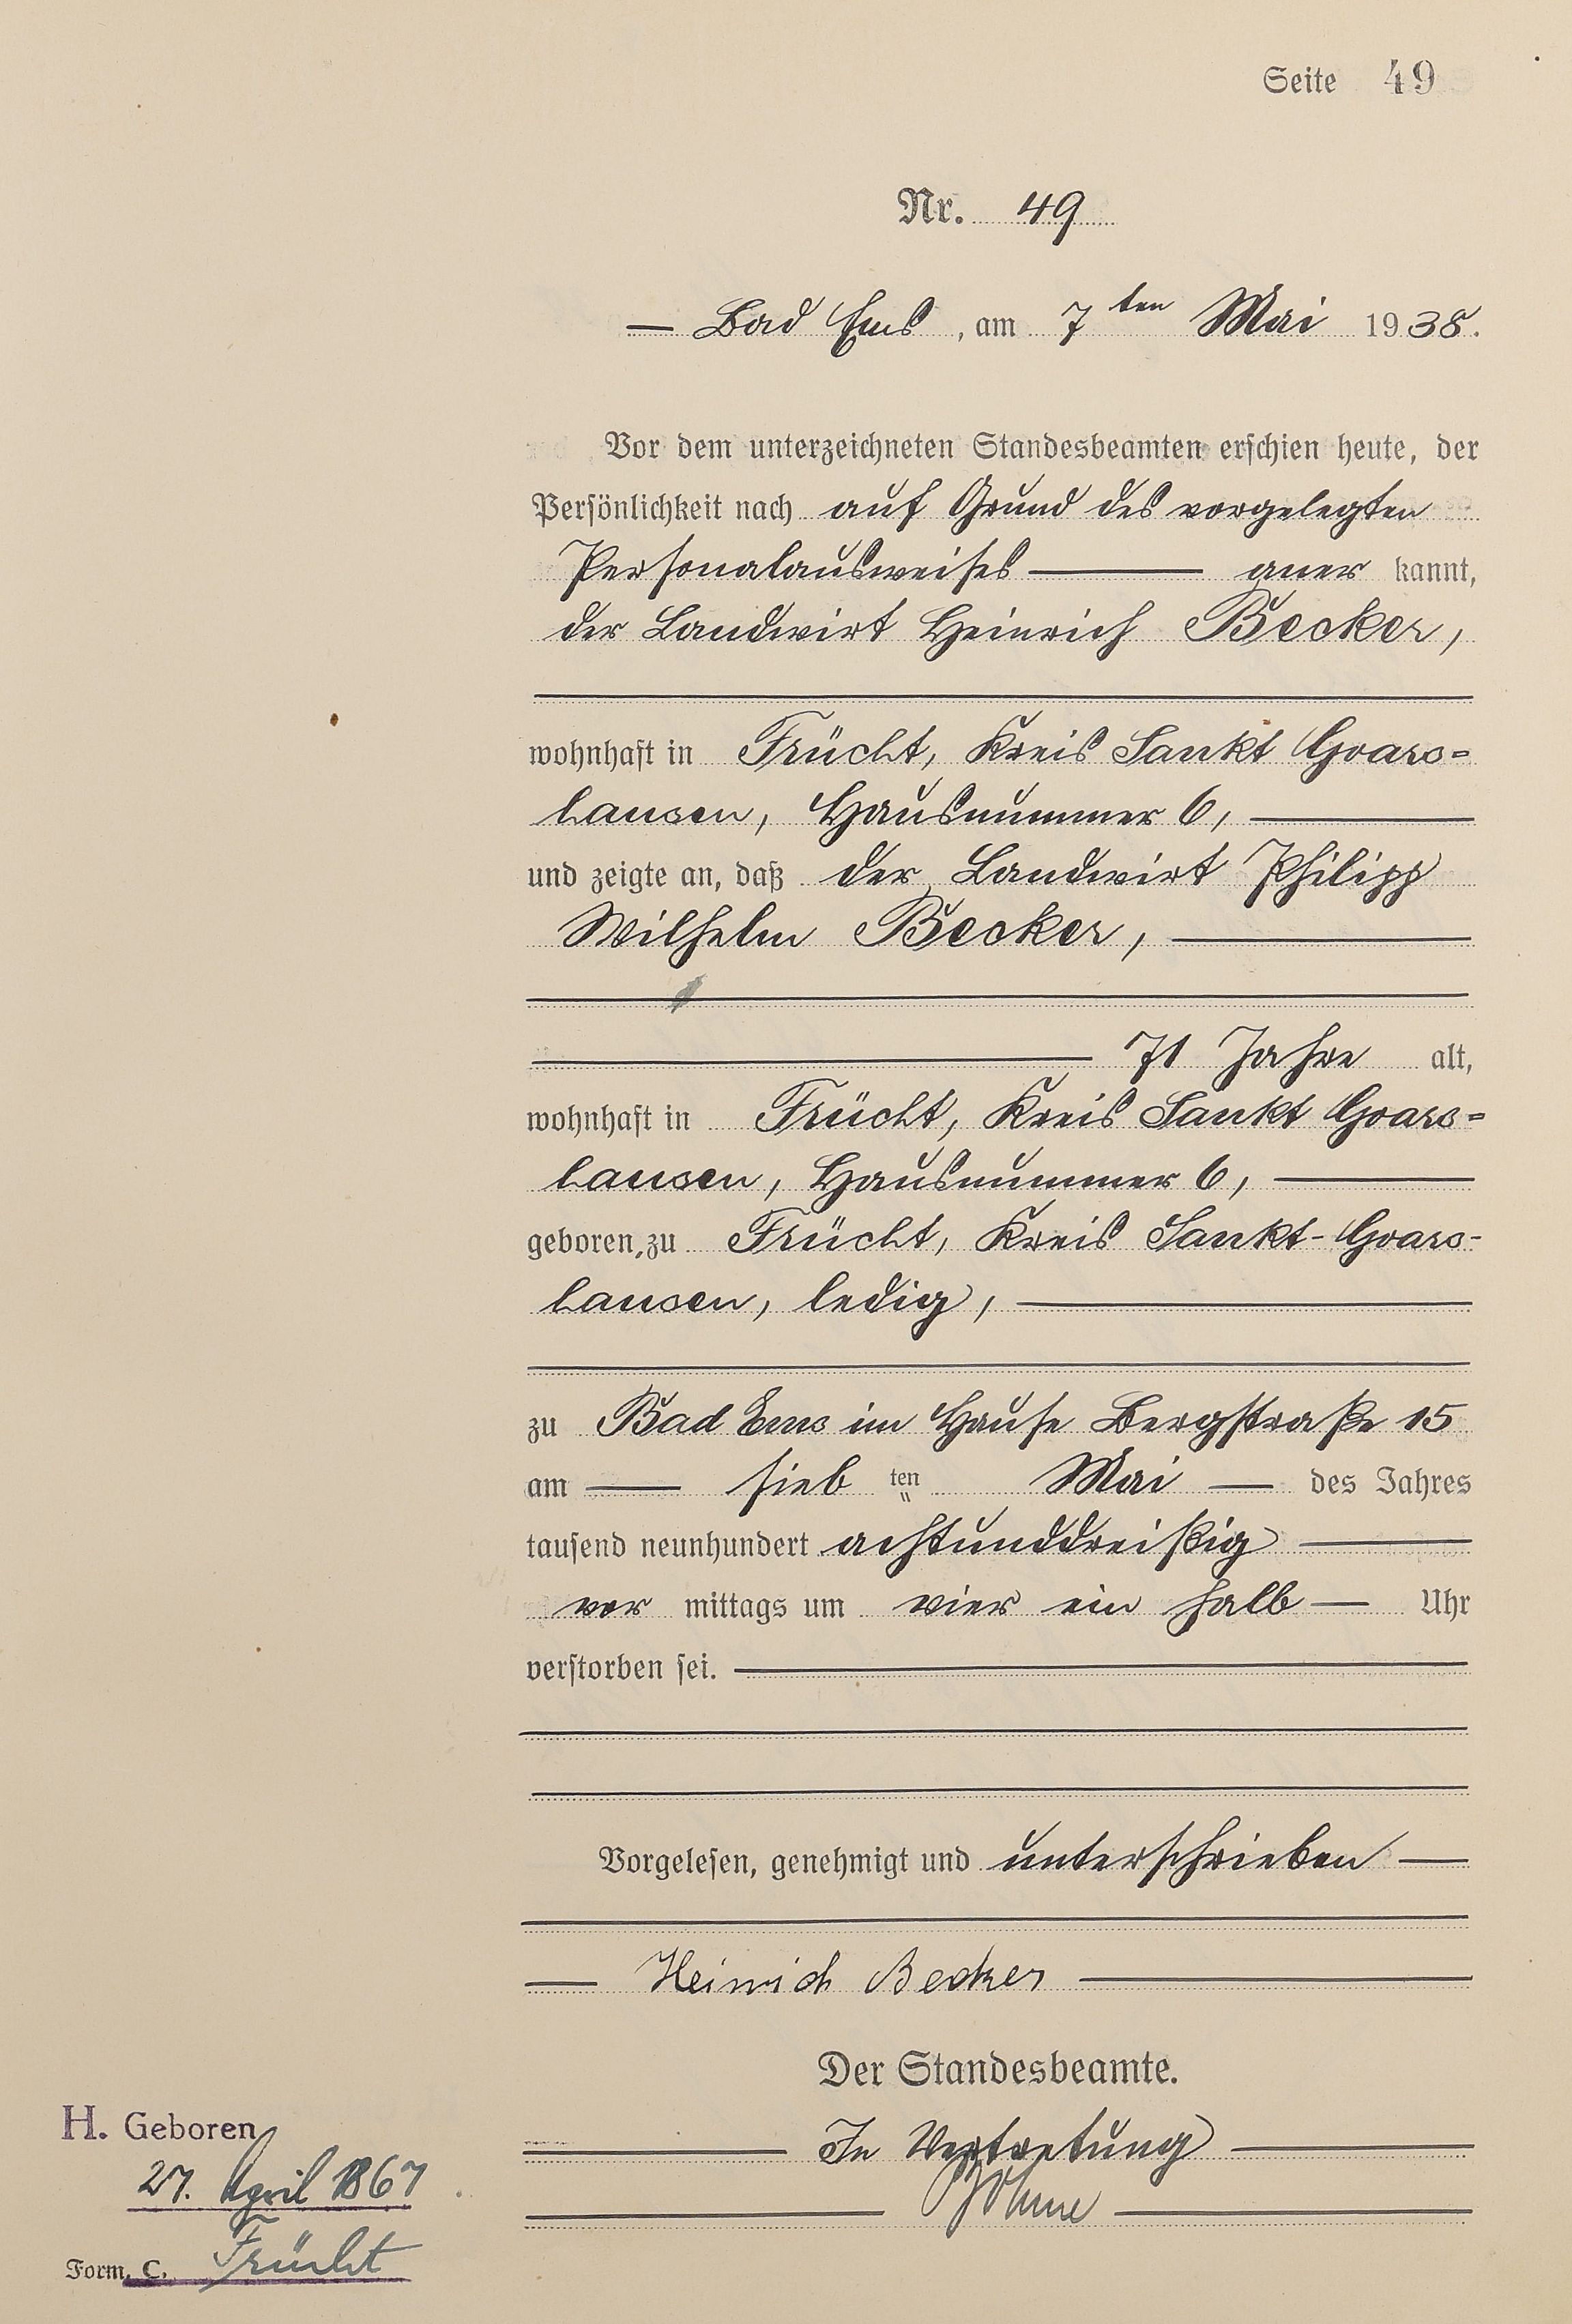 Seite 49
Nr. 49
— Bad Ems, am 7ten Mai 1938.
Vor dem unterzeichneten Standesbeamten erschien heute, der
Persönlichkeit nach auf Grund des vorgelegten
Personalausweises — aner kannt,
der Landwirt Heinrich Becker,
wohnhaft in Frücht, Kreis Sankt Goars=
hausen, Hausnummer 6, —
und zeigte an, daß der Landwirt Philipp
Wilhelm Becker, —
— 71 Jahre alt,
wohnhaft in Frücht, Kreis Sankt Goars=
hausen, Hausnummer 6, —
geboren, zu Frücht, Kreis Sankt-Goars-
hausen, ledig, —
zu Bad Ems im Hause Bergstraße 15
am — sieb ten Mai — des Jahres
tausend neunhundert achtunddreißig —
vor mittags um vier ein halb — Uhr
verstorben sei. —
Vorgelesen, genehmigt und unterschrieben —
— Heinrich Becker —
Der Standesbeamte.
— In Vertretung —
H. Geboren
27. April 1867
Frücht
Form. C.